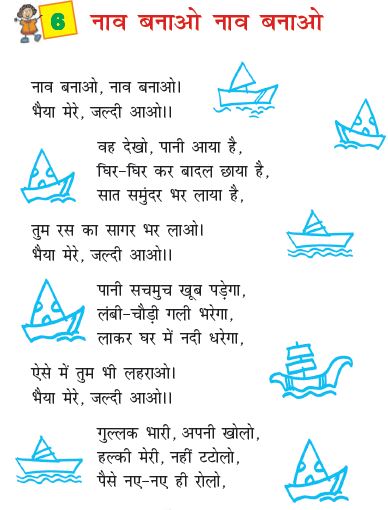 6 नाव बनाओ नाव बनाओ
नाव बनाओ, नाव बनाओ।
भैया मेरे, जल्दी आओ।।
वह देखो, पानी आया है,
घिर-घिर कर बादल छाया है,
सात समुंदर भर लाया है,
तुम रस का सागर भर लाओ।
भैया मेरे, जल्दी आओ।।
पानी सचमुच खूब पड़ेगा,
लंबी-चौड़ी गली भरेगा,
लाकर घर में नदी धरेगा,
ऐसे में तुम भी लहराओ।
भैया मेरे, जल्दी आओ।।
गुल्लक भारी, अपनी खोलो,
हल्की मेरी, नहीं टटोलो,
पैसे नए-नए ही रोलो,